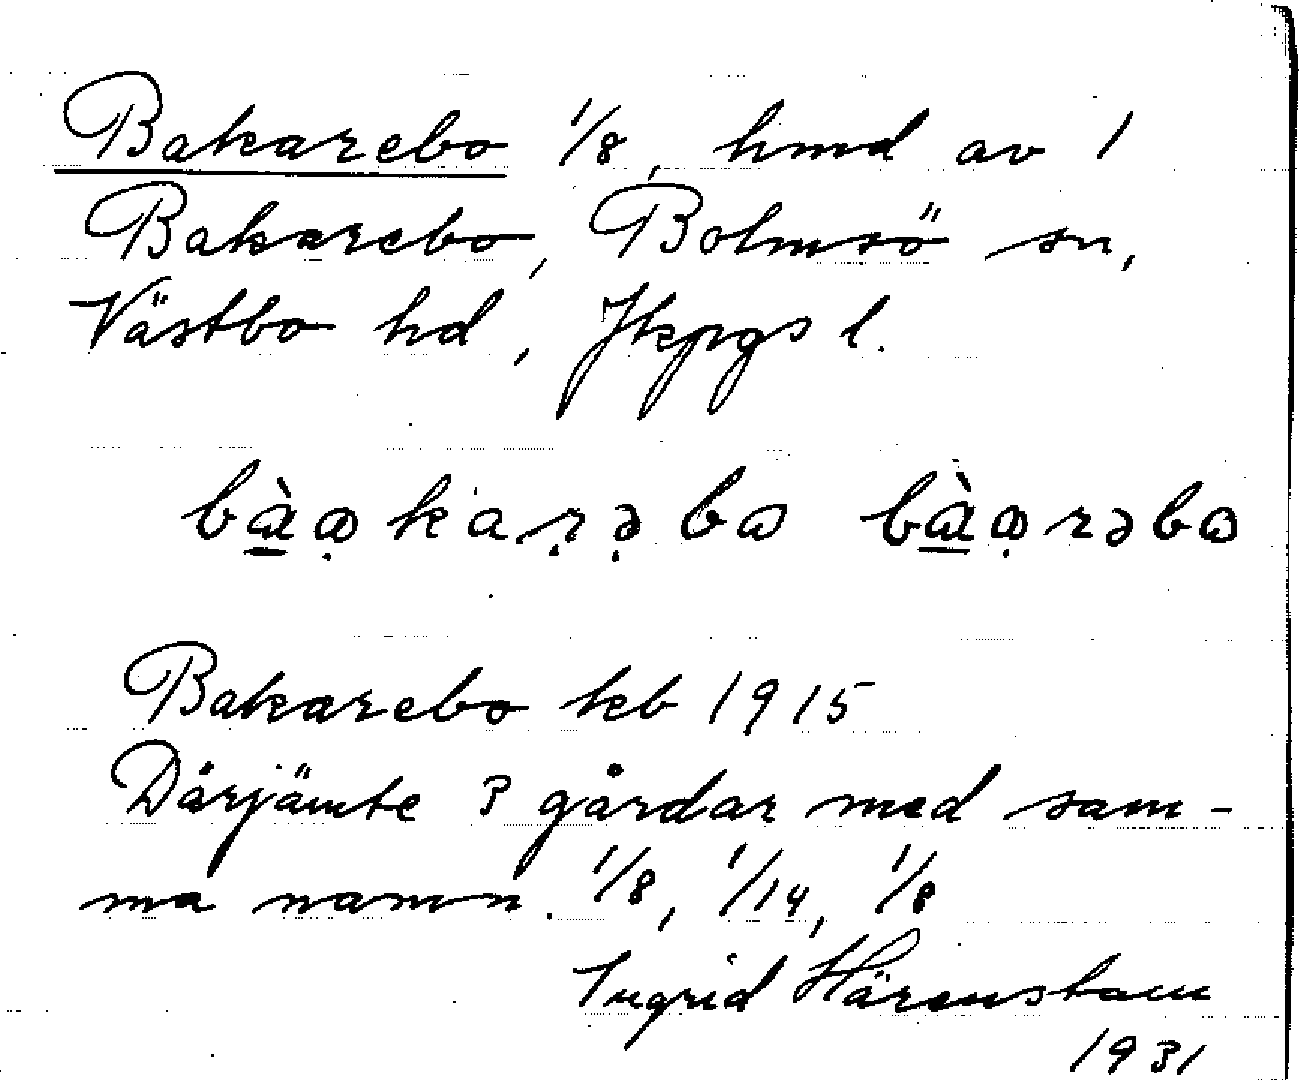 Bakarebo 1/8, hmd av 1
Bakarebo, Bolmsö sn,
Västbo hd, Jkpgs l.
Bakarebo kb 1915
Därjämte 3 gårdar med sam-
ma namn. 1/8, 1/14, 1/8
Ingrid Härenstam
1931